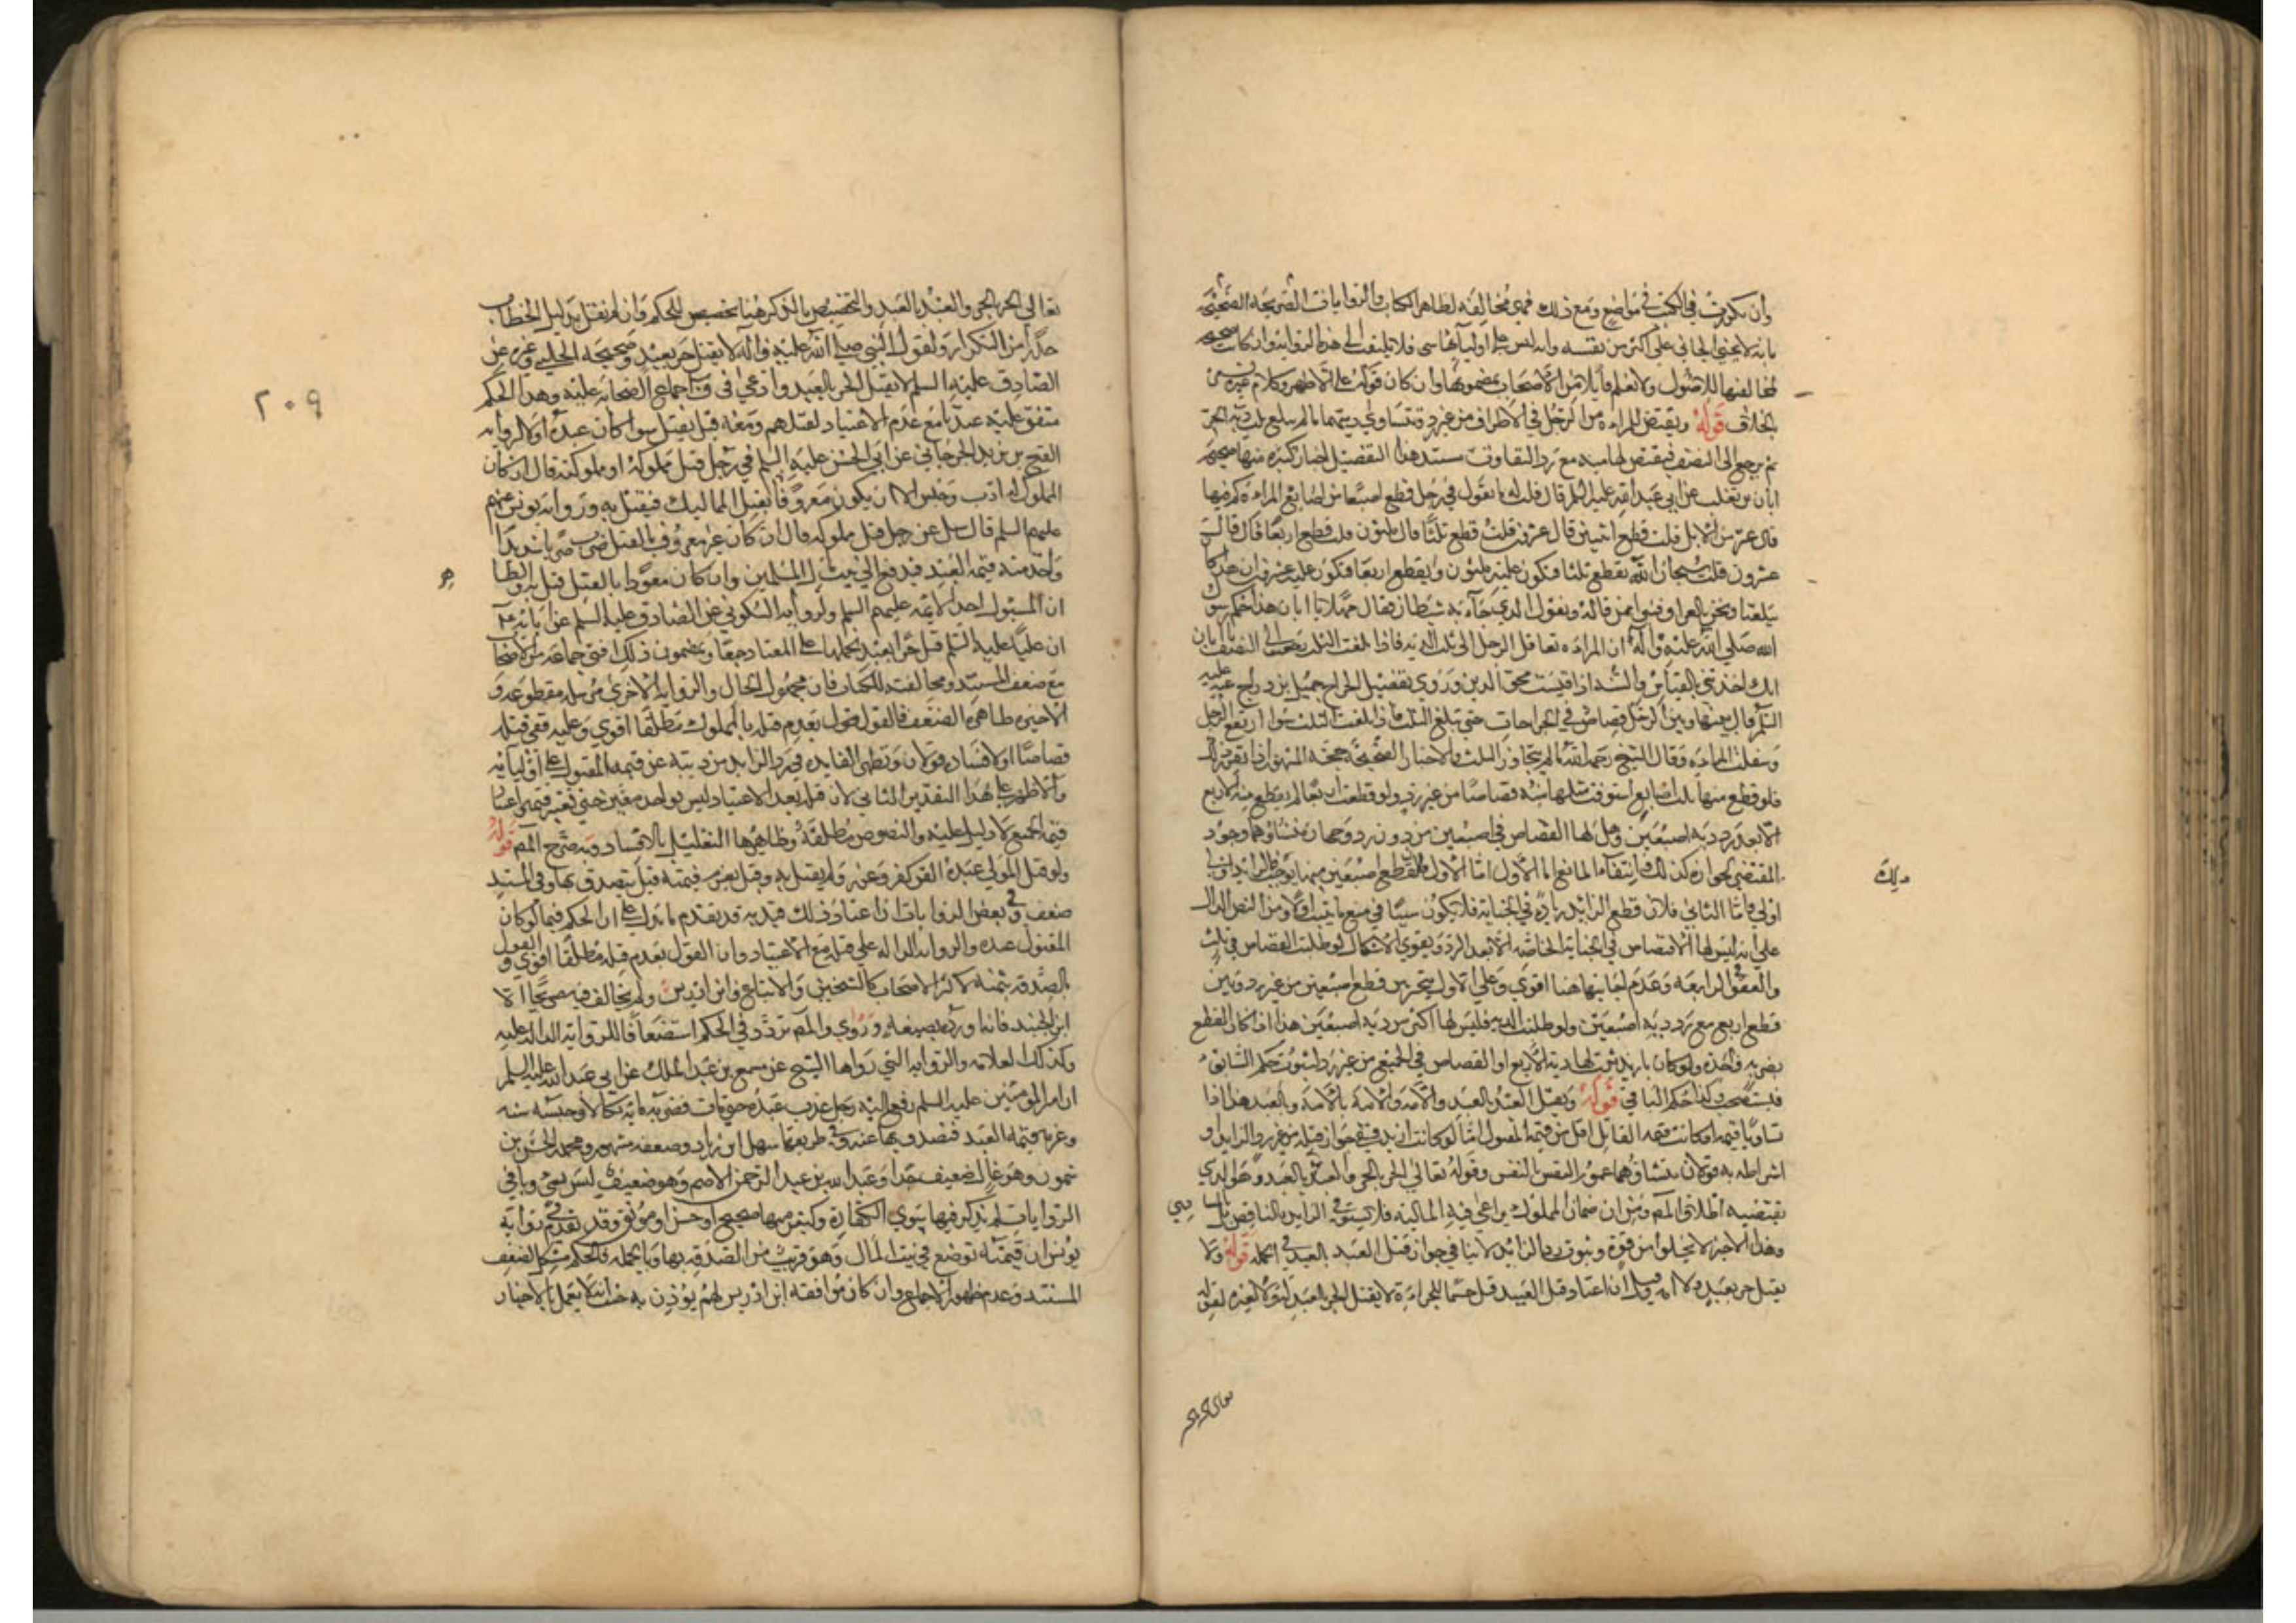 وان تكررت في الكتب في مواضع ومع ذلك فهي مخالفة لظاهر الكتاب والروايات الصريحة الصحيحة
بانه لا يجني الجاني على اكثر من نفسه وانه ليس على اوليائها شي فلا يلتفت الى هذه الرواية وان كانت صحيحه
لمخالفتها للاصول ولا نعلم قايلا من الاصحاب بمضمونها وان كان قوله على الاظهر وكلام غيره
الخلاف قوله ويقتص للمراه من الرجل في الاطراف من غير رد وتتساوى ديتهما مالم يبلغ ثلث دية الحر
ثم يرجع الى النصف فيقتص لها منه مع رد التفاوت مستند هذا التفصيل اخبار كثيره منها صحيحه
ابان بن تغلب عن ابي عبد الله عليه السلم قال قلت له ما تقول في رجل قطع اصبعا من اصابع المراه كم فيها
قال عشر من الابل قلت قطع اثنين قال عشرون قلت قطع ثلثا قال ثلثون قلت قطع اربعا قال قال
عشرون قلت سبحان الله يقطع ثلثا فيكون عليه ثلثون ويقطع اربعا فيكون عليه عشرون ان هذا كان
يبلغنا ونحن بالعراق فنبرا ممن قاله ونقول الذي جآء به شيطان فقال مهلا يا ابان هذا حكم رسول
الله صلى الله عليه وآله ان المراه تعاقل الرجل الى ثلث الديه فاذا بلغت الثلث رجعت الى النصف يا ابان
انك اخذتني بالقياس والسنه اذا قيست محق الدين وروى تفصيل الجراح جميل بن دراج عنه عليه
السلم قال بينها وبين الرجل قصاص في الجراحات حتى تبلغ الثلث فاذا بلغت الثلث سوا ارتفع الرجل
وسفلت المراه وقال الشيخ رحمه الله مالم يتجاوز الثلث والاخبار الصحيحة حجة المشهور اذا تقرر ذلك
فلو قطع منها ثلث اصابع استوفت مثلها منه قصاصا من غير رد ولو قطعت اربعا لم يقطع منه الاربع
الا بعد رد دية اصبعين وهل لها القصاص في اصبعين من دون رد وجهان منشاوهما وجود
المقتضي لجوازه كذلك وانتفاء المانع اما الاول
اولى واما الثاني فلان قطع الزائد زيادة في الجناية فلا يكون سببا في منع ما ثبت اولا ومن النص الدال
على انه ليس لها الاقتصاص في الجناية الخاصه الا بعد الرد ويقوى الاشكال لو طلبت القصاص في ثلث
والعفو في الرابعه وعدم اجابتها هنا اقوى وعلى الاول يتخير بين قطع اصبعين من غير رد وبين
قطع اربع مع رد دية اصبعين ولو طلبت الديه فليس لها اكثر من دية اصبعين هذا اذا كان القطع
بضربه واحده ولو كان بازيد ثبت لها دية الاربع او القصاص في الجميع من غير رد لثبوت حكم السابق
فيستصحب وكذا حكم الباقي قوله ويقتل العبد بالعبد والامه والامة بالامة وبالعبد هذا اذا
تساويا قيمه او كانت قيمه القاتل اقل من قيمة المقتول اما لو كانت ازيد ففي جواز قتله من غير رد الزايد او
اشتراطه به قولان منشاؤهما عموم النفس بالنفس وقوله تعالى الحر بالحر والعبد بالعبد وهو الذي
يقتضيه اطلاق المصـ ومن ان ضمان المملوك يراعى فيه الماليه فلا يستوفى الزايد بالناقص
وهذا الاخير لا يخلوا من قوة وثبوت رد الزائد لا ينافي جواز قتل العبد بالعبد في الجمله قوله ولا
يقتل حر بعبد ولا امه وقيل ان اعتاد قتل العبيد قتل حسما للجراءة لا يقتل الحر بالعبد له ولا لغيره لقوله
ملك
تعالى الحر بالحر والعبد بالعبد والتخصيص بالذكر هنا تخصيص للحكم وان لم نقل بدليل الخطاب
حذرا من التكرار ولقول النبي صلى الله عليه وآله لا يقتل حر بعبد وصحيحة الحلبي وغيره عن
الصادق عليه السلم لا يقتل الحر بالعبد وادعى في ف اجماع الصحابه عليه وهذا الحكم
متفق عليه عندنا مع عدم الاعتياد لقتلهم ومعه قيل يقتل سوا كان عبده او لا لروايه
الفتح بن يزيد الجرجاني عن ابي الحسن عليه السلم في رجل قتل مملوكه او مملوكته قال ان كان
المملوك له ادب وحبس الا ان يكون معروفا بقتل المماليك فيقتل به ورواية يونس عنهم
عليهم السلم قال سئل عن رجل قتل مملوكه قال ان كان غير معروف بالقتل ضرب ضربا شديدا
واخذ منه قيمة العبد فيدفع الى بيت مال المسلمين وان كان متعودا بالقتل قتل به والظا
ان المسئول احد الائمة عليهم السلم ولرواية السكوني عن الصادق عليه السلم عن آبائه عـ
ان عليا عليه السلم قتل حرا بعبد بحملها على المعتاد جمعا وبمضمون ذلك افتى جماعة من الاصحاب
مع ضعف المستند ومخالفته للكتاب فان مجهول الحال والرواية الاخرى مرسله مقطوعه و
الاخيره ظاهرة الضعف فالقول بعدم قتله بالمملوك مطلقا اقوى وعليه ففي قتله
قصاصا او لافساده قولان وتظهر الفايده في رد الزايد من ديته عن قيمه المقتول على اوليائه
والاظهر على هذا التقدير الثاني لان قتله بعد الاعتياد ليس بواحد معين حتى تعتبر قيمته واعتبار
قيمة الجميع لا دليل عليه والنصوص مطلقة وظاهرها التعليل بالافساد وبه صرح المصـ قوله
ولو قتل المولى عبده القود كفر وعزر ولم يقتل به وقيل يغرم قيمته قيل يتصدق بها وفي المستند
ضعف وفي بعض الروايات ان اعتاد ذلك قتل به قد تقدم ما يدل على ان الحكم فيما لو كان
المقتول عبده والرواية الدالة على قتله مع الاعتياد وان القول بعدم قتله مطلقا اقوى والقول
بالصدقه بثمنه لاكثر الاصحاب كالشيخين والاتباع وابن ادريس ولم يخالف فيه صريحا الا
ابن الجنيد فانه اورده بصيغة وروي والمصـ تردد في الحكم استضعافا للرواية الداله عليه
وكذلك العلامه والرواية التي رواها الشيخ عن مسمع بن عبد الملك عن ابي عبد الله عليه السلم
ان امير المؤمنين عليه السلم رفع اليه رجل عذب عبده حتى مات فضربه مائة نكالا وحبسه سنه
وغرمه قيمة العبد فتصدق بها عنه وفي طريقها سهل ابن زياد وضعفه مشهور ومحمد الحسن بن
شمون وهو غال ضعيف جدا وعبد الله بن عبد الرحمن الاصم وهو ضعيف ليس بشي وباقي
الروايات لم يذكر فيها سوى الكفارة وكثير منها صحيح او حسن او موثق وقد تقدم في رواية
يونس ان قيمته توضع في بيت المال وهو قريب من الصدقه بها وبالجمله فالحكم مشكل لضعف
المستند وعدم ظهور الاجماع وان كان موافقه ابن ادريس لهم يؤذن به حيث انه لا يعمل بالاخبار
٢٠٩